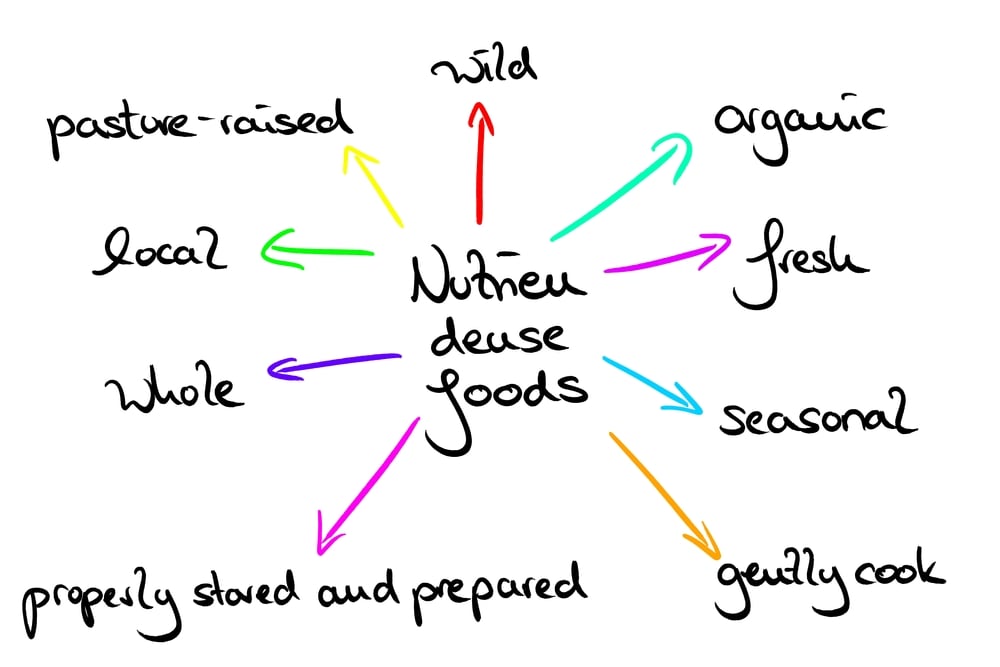 wild
pasture-raised
organic
local
fresh
Nutrien
dense
foods
whole
seasonal
properly stored and prepared
gently cook